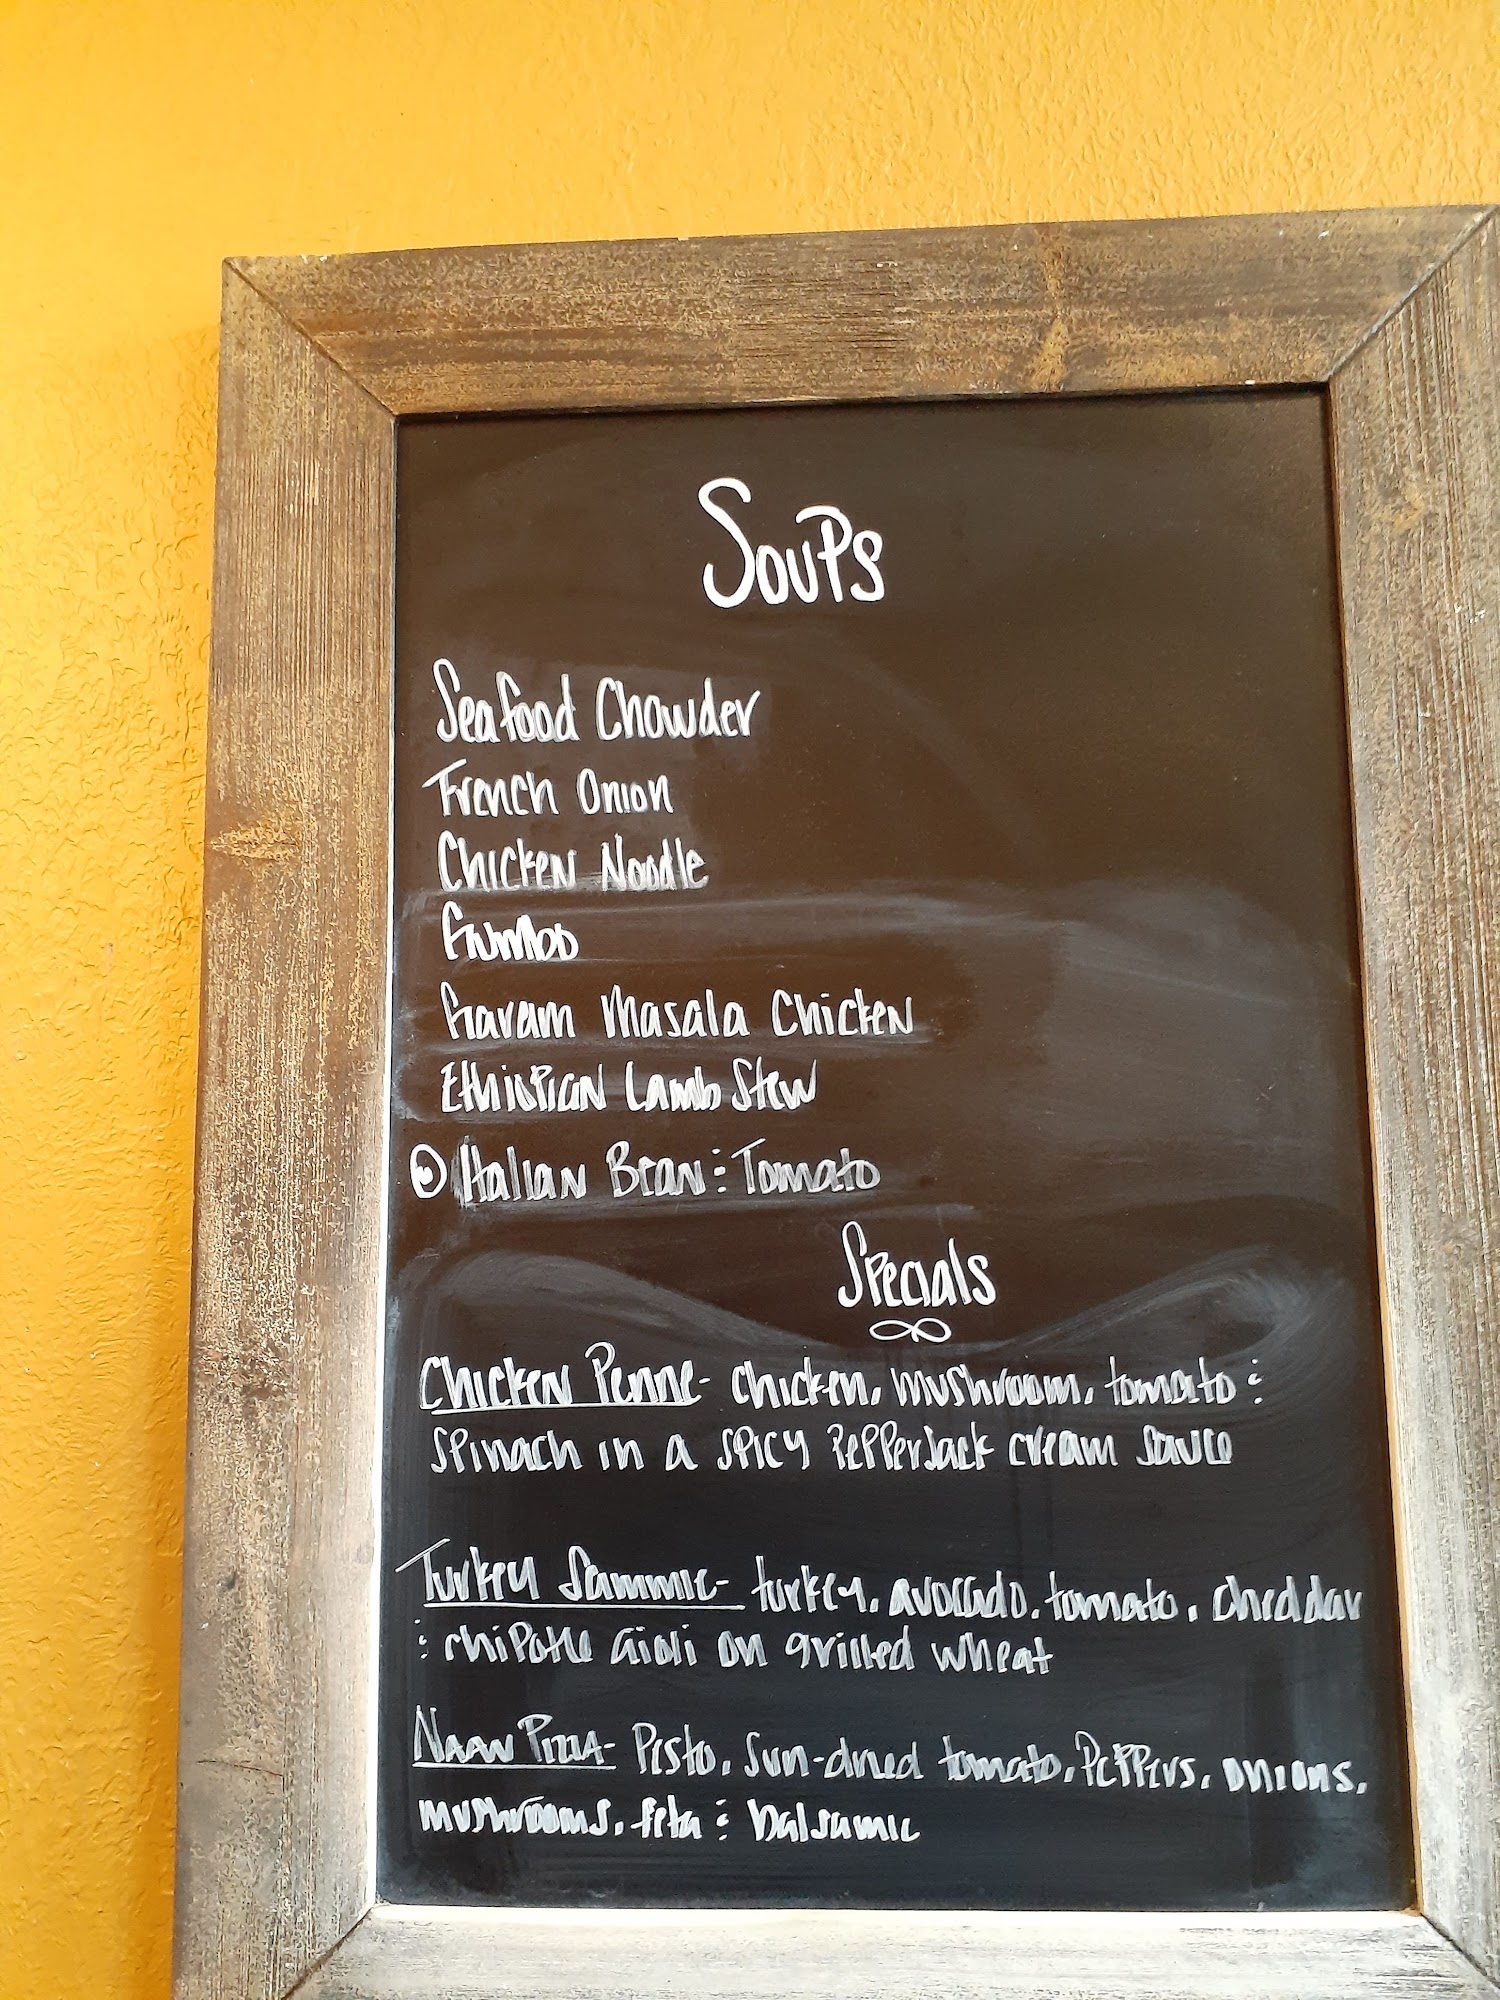 Soups
Seafood Chowder
French Onion
Chicken Noodle
Gumbo
Garam Masala Chicken
Ethiopian Lamb Stew
Italian Bean & Tomato
Specials
Chicken Penne- chicken, mushroom, tomato &
spinach in a spicy pepperjack cream sauce
Turkey Sammie- turkey, avocado, tomato, cheddar
& chipotle aioli on grilled wheat
Naan Pizza- Pesto, sun-dried tomato, Peppers, onions,
mushrooms, feta & balsamic